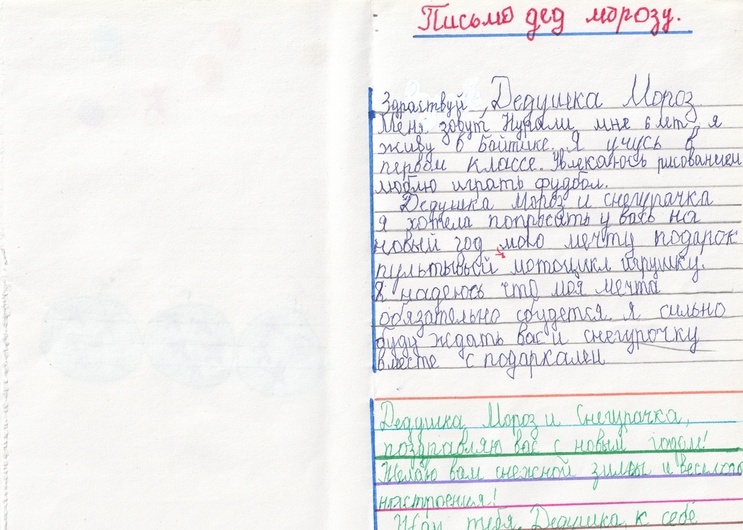 Письмо дед морозу.
Здраствуй, Дедушка Мороз
Меня зовут Нурали мне 6 лет я
живу в Байтике. Я учусь в
первом классе. Увлекаюсь рисованием
люблю играть фудбол.
Дедушка Мороз и снегурачка
я хотела попрасать у вась на
новый год мою мечту подарок
пультывый мотоцикл игрушку.
Я надеюсь что моя мечта
обязательно сбудется. я сильно
буду ждать вас и снегурочку
вместе с подарками
Дедушка Мороз и Снегурачка,
поздравляю вас с новым годом!
Желаю вам снежной зимы и веселого
настроения!
Жду тебя Дедушка к себе